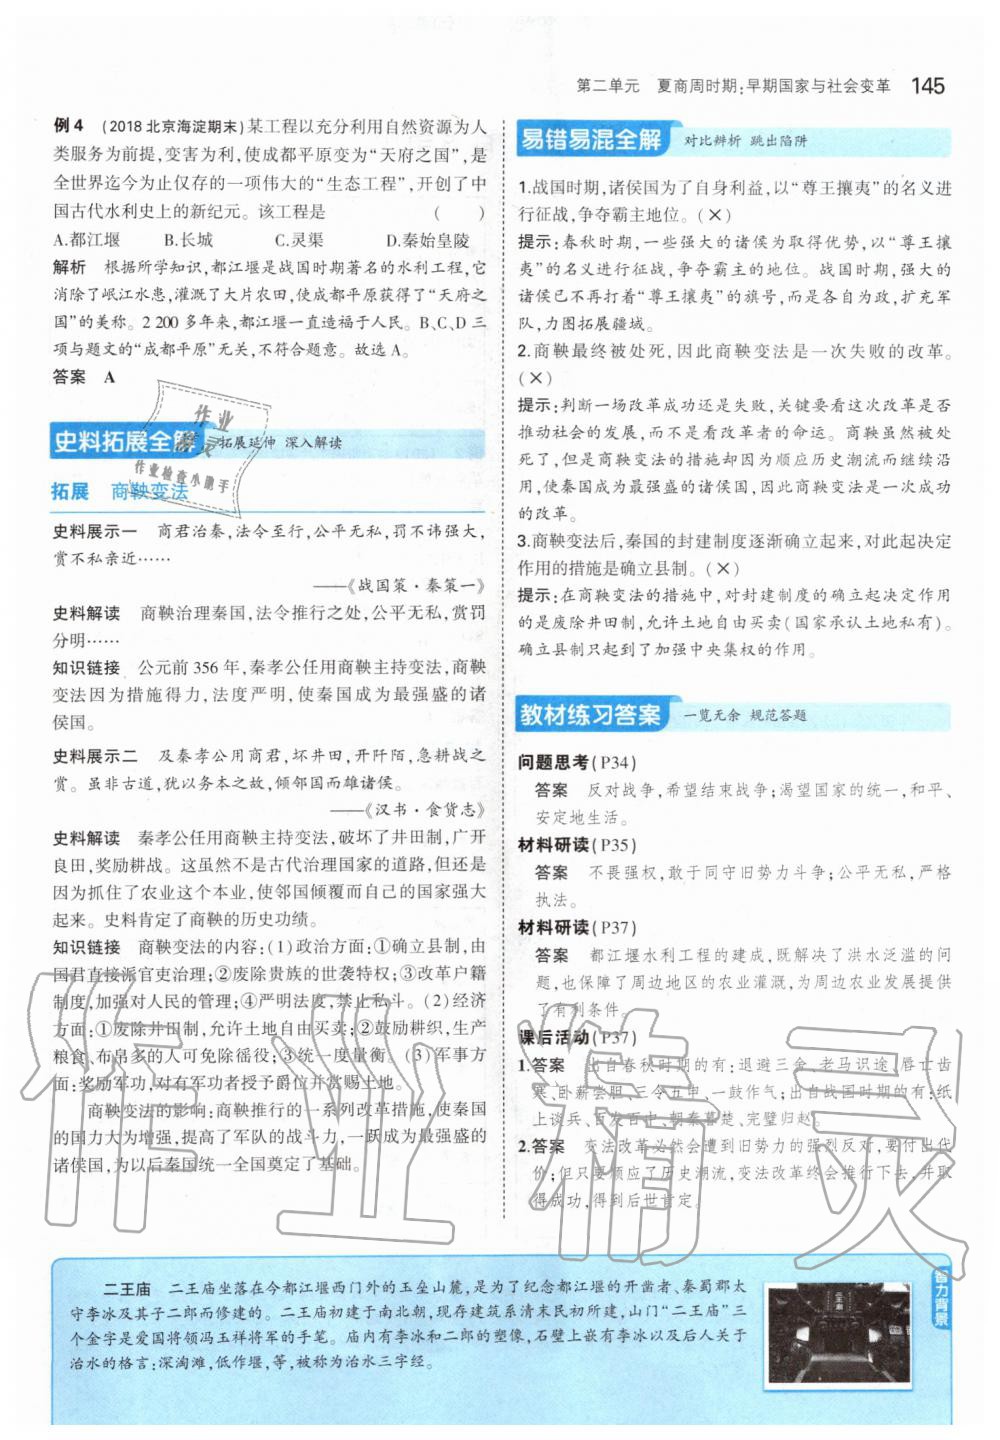 第二单元　夏商周时期:早期国家与社会变革　145
例4　(2018北京海淀期末)某工程以充分利用自然资源为人
类服务为前提,变害为利,使成都平原变为“天府之国”,是
全世界迄今为止仅存的一项伟大的“生态工程”,开创了中
国古代水利史上的新纪元。该工程是　(　　)
A.都江堰　B.长城　C.灵渠　D.秦始皇陵
解析　根据所学知识,都江堰是战国时期著名的水利工程,它
消除了岷江水患,灌溉了大片农田,使成都平原获得了“天府之
国”的美称。2 200多年来,都江堰一直造福于人民。B、C、D三
项与题文的“成都平原”无关,不符合题意。故选A。
答案　A
史料拓展全解　拓展延伸　深入解读
拓展　商鞅变法
史料展示一　商君治秦,法令至行,公平无私,罚不讳强大,
赏不私亲近……
——《战国策·秦策一》
史料解读　商鞅治理秦国,法令推行之处,公平无私,赏罚
分明……
知识链接　公元前356年,秦孝公任用商鞅主持变法,商鞅
变法因为措施得力,法度严明,使秦国成为最强盛的诸
侯国。
史料展示二　及秦孝公用商君,坏井田,开阡陌,急耕战之
赏。虽非古道,犹以务本之故,倾邻国而雄诸侯。
——《汉书·食货志》
史料解读　秦孝公任用商鞅主持变法,破坏了井田制,广开
良田,奖励耕战。这虽然不是古代治理国家的道路,但还是
因为抓住了农业这个本业,使邻国倾覆而自己的国家强大
起来。史料肯定了商鞅的历史功绩。
知识链接　商鞅变法的内容:(1)政治方面:①确立县制,由
国君直接派官吏治理;②废除贵族的世袭特权;③改革户籍
制度,加强对人民的管理;④严明法度,禁止私斗。(2)经济
方面:①废除井田制,允许土地自由买卖;②鼓励耕织,生产
粮食、布帛多的人可免除徭役;③统一度量衡。(3)军事方
面:奖励军功,对有军功者授予爵位并赏赐土地。
商鞅变法的影响:商鞅推行的一系列改革措施,使秦国
的国力大为增强,提高了军队的战斗力,一跃成为最强盛的
诸侯国,为以后秦国统一全国奠定了基础。
易错易混全解　对比辨析　跳出陷阱
1.战国时期,诸侯国为了自身利益,以“尊王攘夷”的名义进
行征战,争夺霸主地位。(×)
提示:春秋时期,一些强大的诸侯为取得优势,以“尊王攘
夷”的名义进行征战,争夺霸主的地位。战国时期,强大的
诸侯已不再打着“尊王攘夷”的旗号,而是各自为政,扩充军
队,力图拓展疆域。
2.商鞅最终被处死,因此商鞅变法是一次失败的改革。
(×)
提示:判断一场改革成功还是失败,关键要看这次改革是否
推动社会的发展,而不是看改革者的命运。商鞅虽然被处
死了,但是商鞅变法的措施却因为顺应历史潮流而继续沿
用,使秦国成为最强盛的诸侯国,因此商鞅变法是一次成功
的改革。
3.商鞅变法后,秦国的封建制度逐渐确立起来,对此起决定
作用的措施是确立县制。(×)
提示:在商鞅变法的措施中,对封建制度的确立起决定作用
的是废除井田制,允许土地自由买卖(国家承认土地私有)。
确立县制只起到了加强中央集权的作用。
教材练习答案　一览无余　规范答题
问题思考(P34)
答案　反对战争,希望结束战争;渴望国家的统一,和平、
安定地生活。
材料研读(P35)
答案　不畏强权,敢于同守旧势力斗争;公平无私,严格
执法。
材料研读(P37)
答案　都江堰水利工程的建成,既解决了洪水泛滥的问
题,也保障了周边地区的农业灌溉,为周边农业发展提供
了有利条件。
课后活动(P37)
1.答案　出自春秋时期的有:退避三舍、老马识途、唇亡齿
寒、卧薪尝胆、三令五申、一鼓作气;出自战国时期的有:纸
上谈兵、百发百中、朝秦暮楚、完璧归赵。
2.答案　变法改革必然会遭到旧势力的强烈反对,要付出代
价;但只要顺应了历史潮流,变法改革终会推行下去,并取
得成功,得到后世肯定。
智力背景
二王庙　二王庙坐落在今都江堰西门外的玉垒山麓,是为了纪念都江堰的开凿者、秦蜀郡太
守李冰及其子二郎而修建的。二王庙初建于南北朝,现存建筑系清末民初所建,山门“二王庙”三
个金字是爱国将领冯玉祥将军的手笔。庙内有李冰和二郎的塑像,石壁上嵌有李冰以及后人关于
治水的格言:深淘滩,低作堰,等,被称为治水三字经。
二王庙
作业
精灵
作业检查小助手
作业精灵